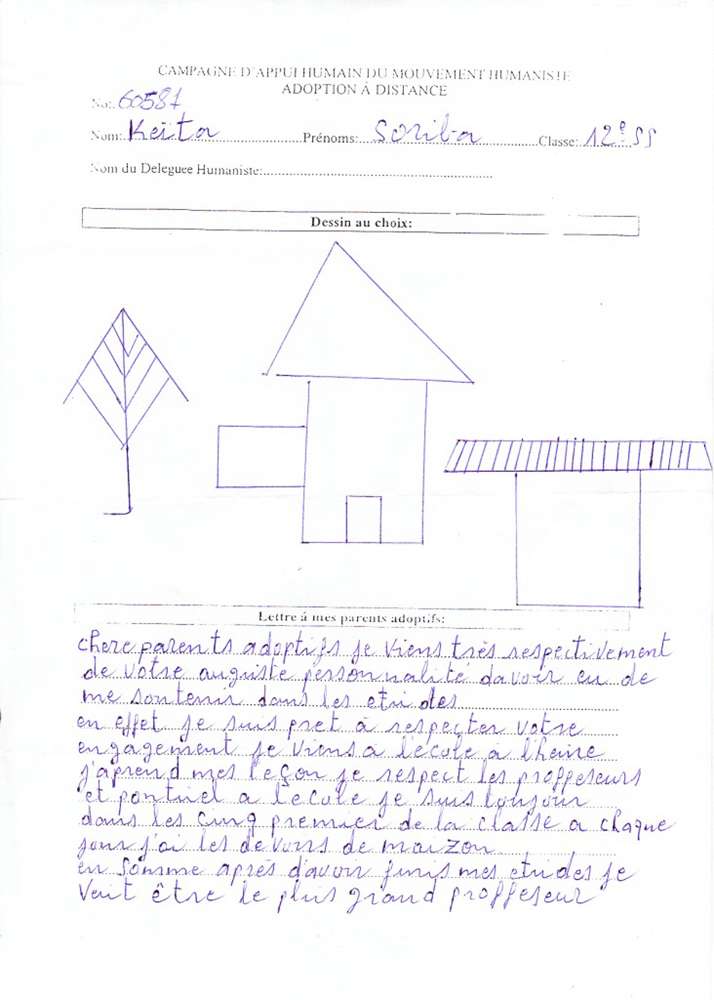 CAMPAGNE D'APPUI HUMAIN DU MOUVEMENT HUMANISTE
ADOPTION À DISTANCE
No: 60587
Nom: Keita Prénoms: Soriba Classe: 12e SS
Nom du Deleguee Humaniste:
Dessin au choix:
Lettre á mes parents adoptifs:
chere parents adoptifs je viens très respectivement
de votre auguste personnalité d'avoir eu de
me soutenir dans les etudes
en effet je suis pret à respecter votre
engagement je viens a l'école à l'heure
j'aprend mes leçon je respect les proffeseurs
et pontuel a l'école je suis toujour
dans les cinq premier de la classe a chaque
jour j'ai les devoirs de maizon
en somme après d'avoir finis mes etudes je
veut être le plus grand proffeseur